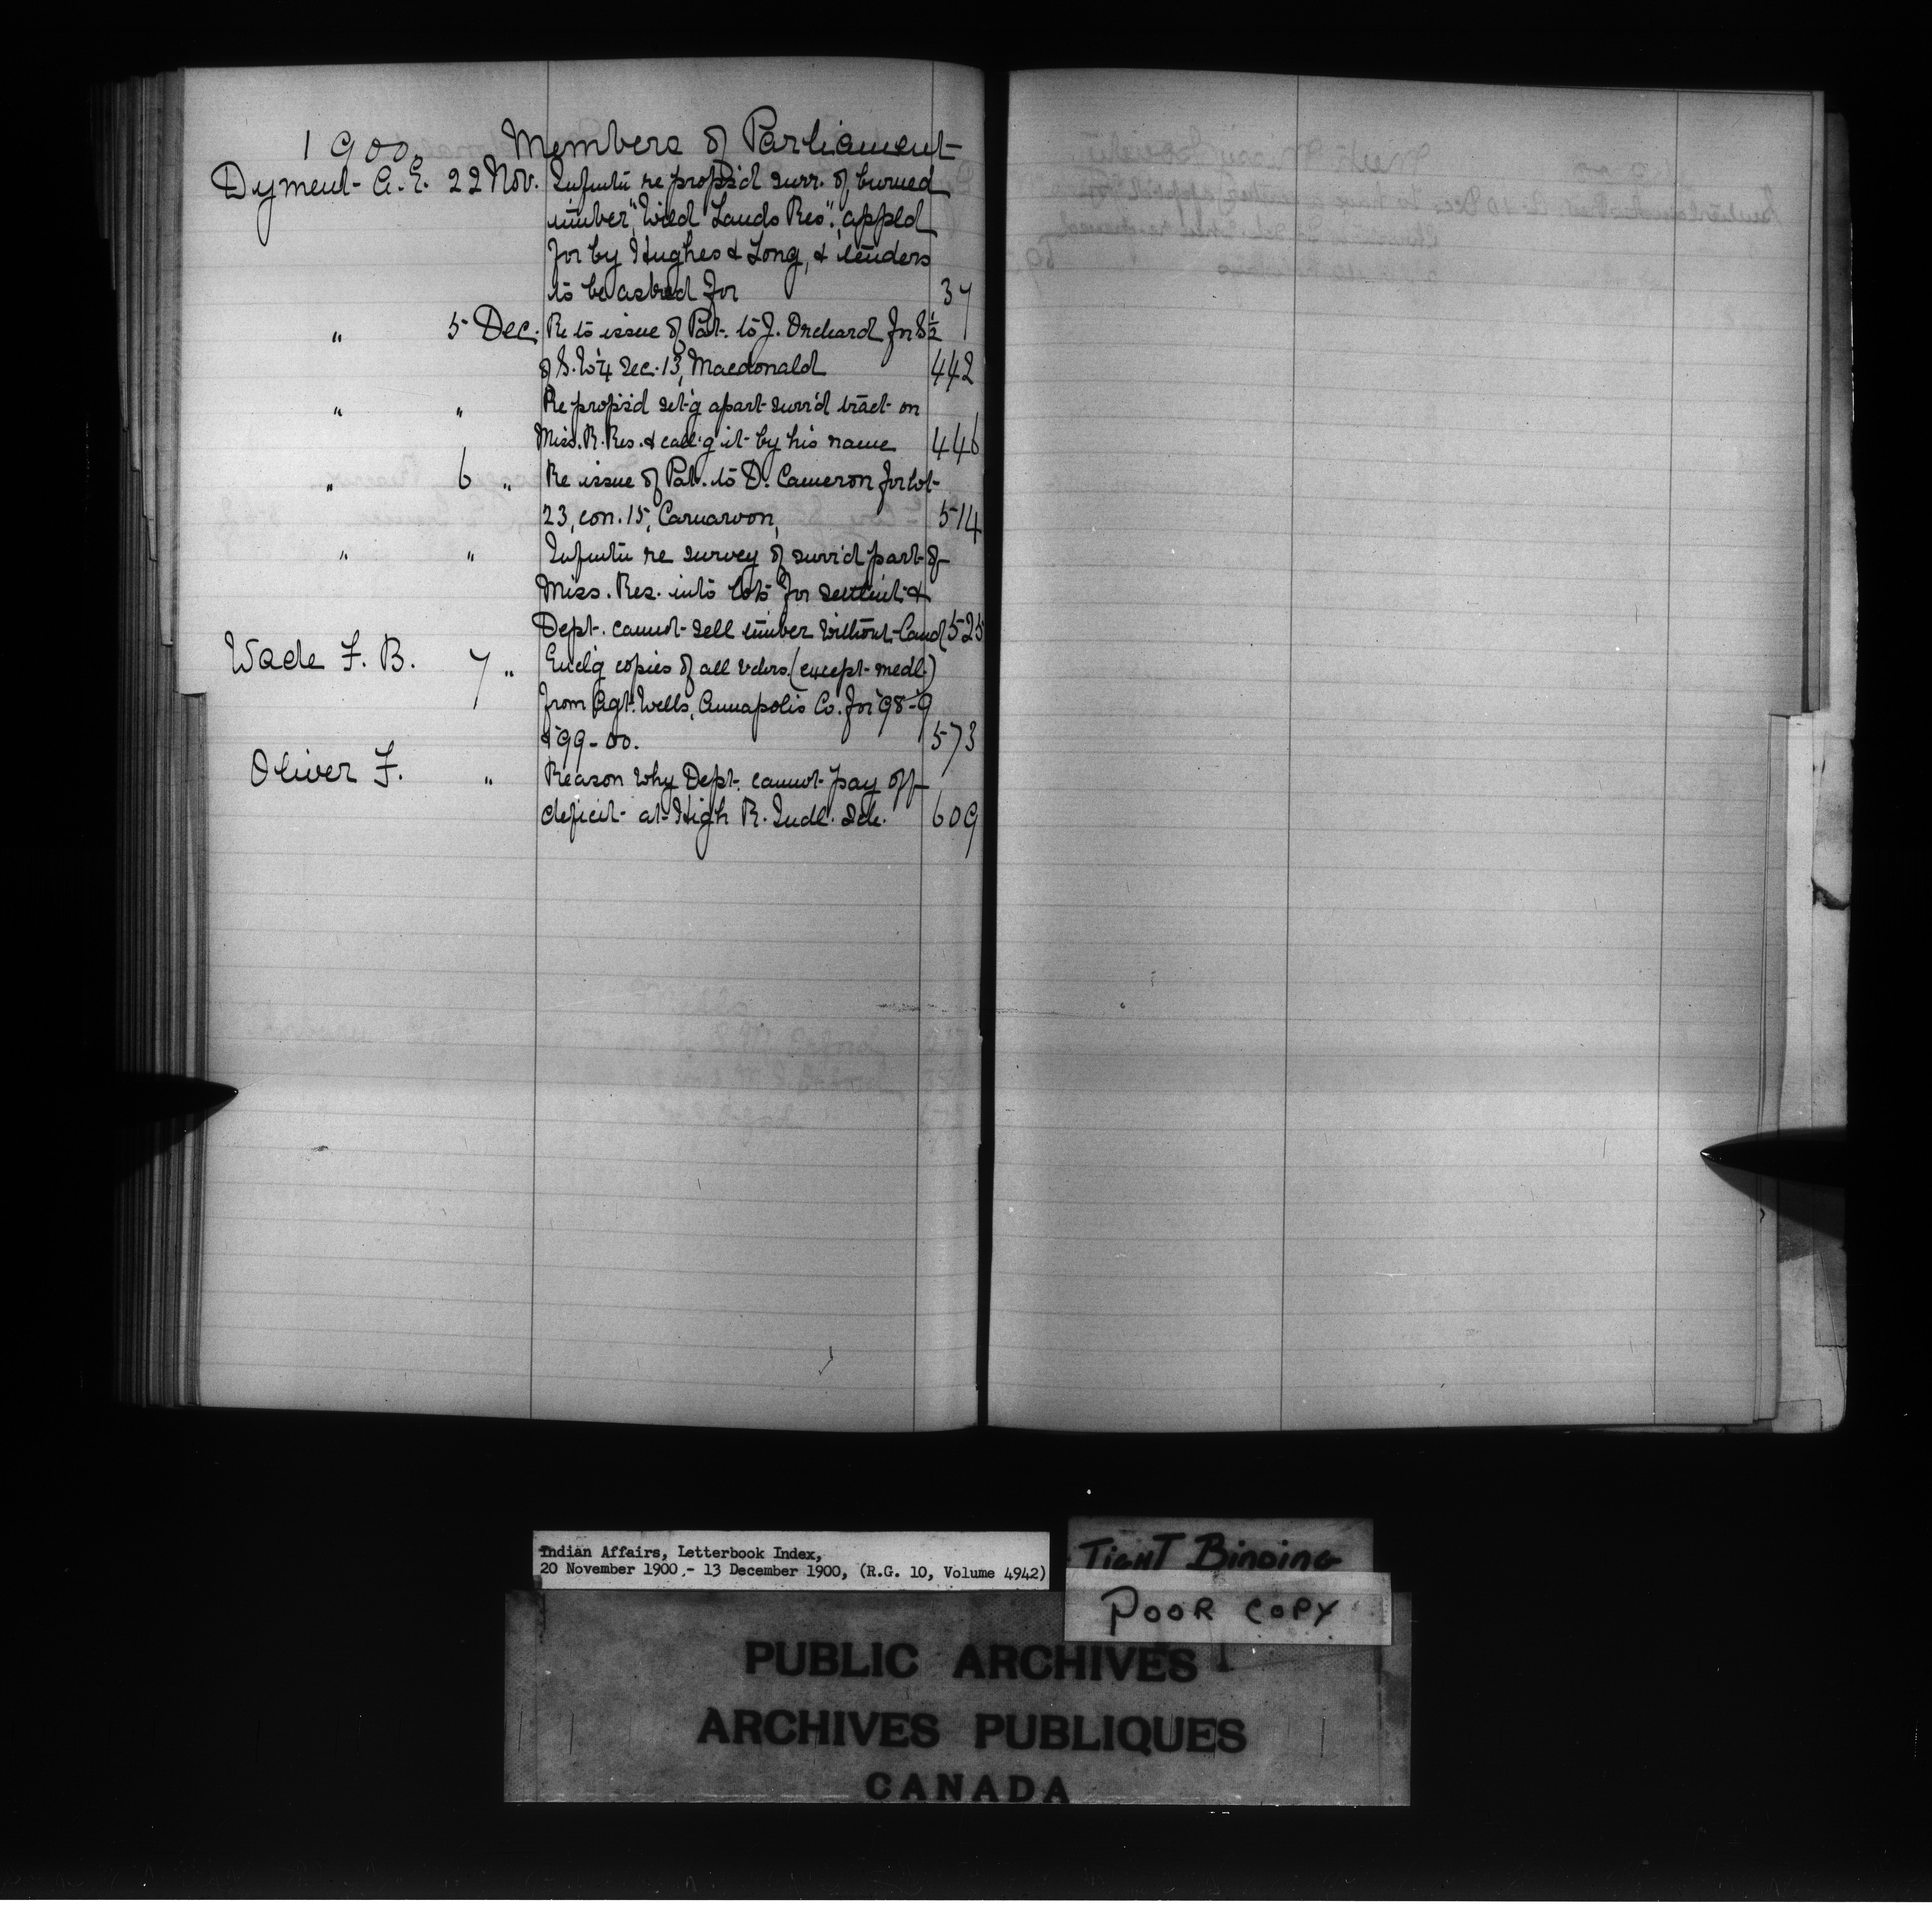 1900. Members of Parliament
Dyment A. E. 22 Nov. Infmtn re propsd surr. of burned
timber, "Wild Lands Res", appld
for by Hughes & Long, & tenders
to be asked for 37
" 5 Dec. Re to issue of Pat. to J. Orchard for S½
of S.W¼ Sec. 13, Macdonald 442
" " Re propsd set'g apart surr'd tract on
Miss. R. Res. & call'g it by his name 446
" 6 " Re issue of Pat. to D. Cameron for lot
23, con. 15, Carnarvon, 514
" " Infmtn re survey of surr'd part of
Miss. Res. into lots for settlmt &
Dept. cannot sell timber without land 525
Wade F. B. 7 " Encl'g copies of all vchrs. (except medl.)
from Agt. Wells, Annapolis Co. for '98-9
& '99-00. 573
Oliver F. " Reason why Dept. cannot pay off
deficit at High R. Indl. Sch. 609
Indian Affairs, Letterbook Index,
20 November 1900 - 13 December 1900, (R.G. 10, Volume 4942)
TIGHT BINDING
POOR COPY
PUBLIC ARCHIVES
ARCHIVES PUBLIQUES
CANADA